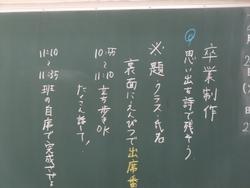 卒業制作
思い出を詩で残そう
※題 クラス・氏名
裏面にえんぴつで出席番
10:45
〜
11:10
立ち歩きOK
たくさん話して!
11:10
〜
11:35
班の自席で完成させよ